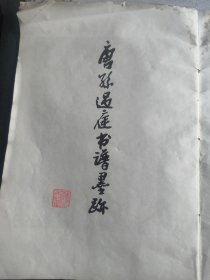 唐孙过庭书谱墨跡